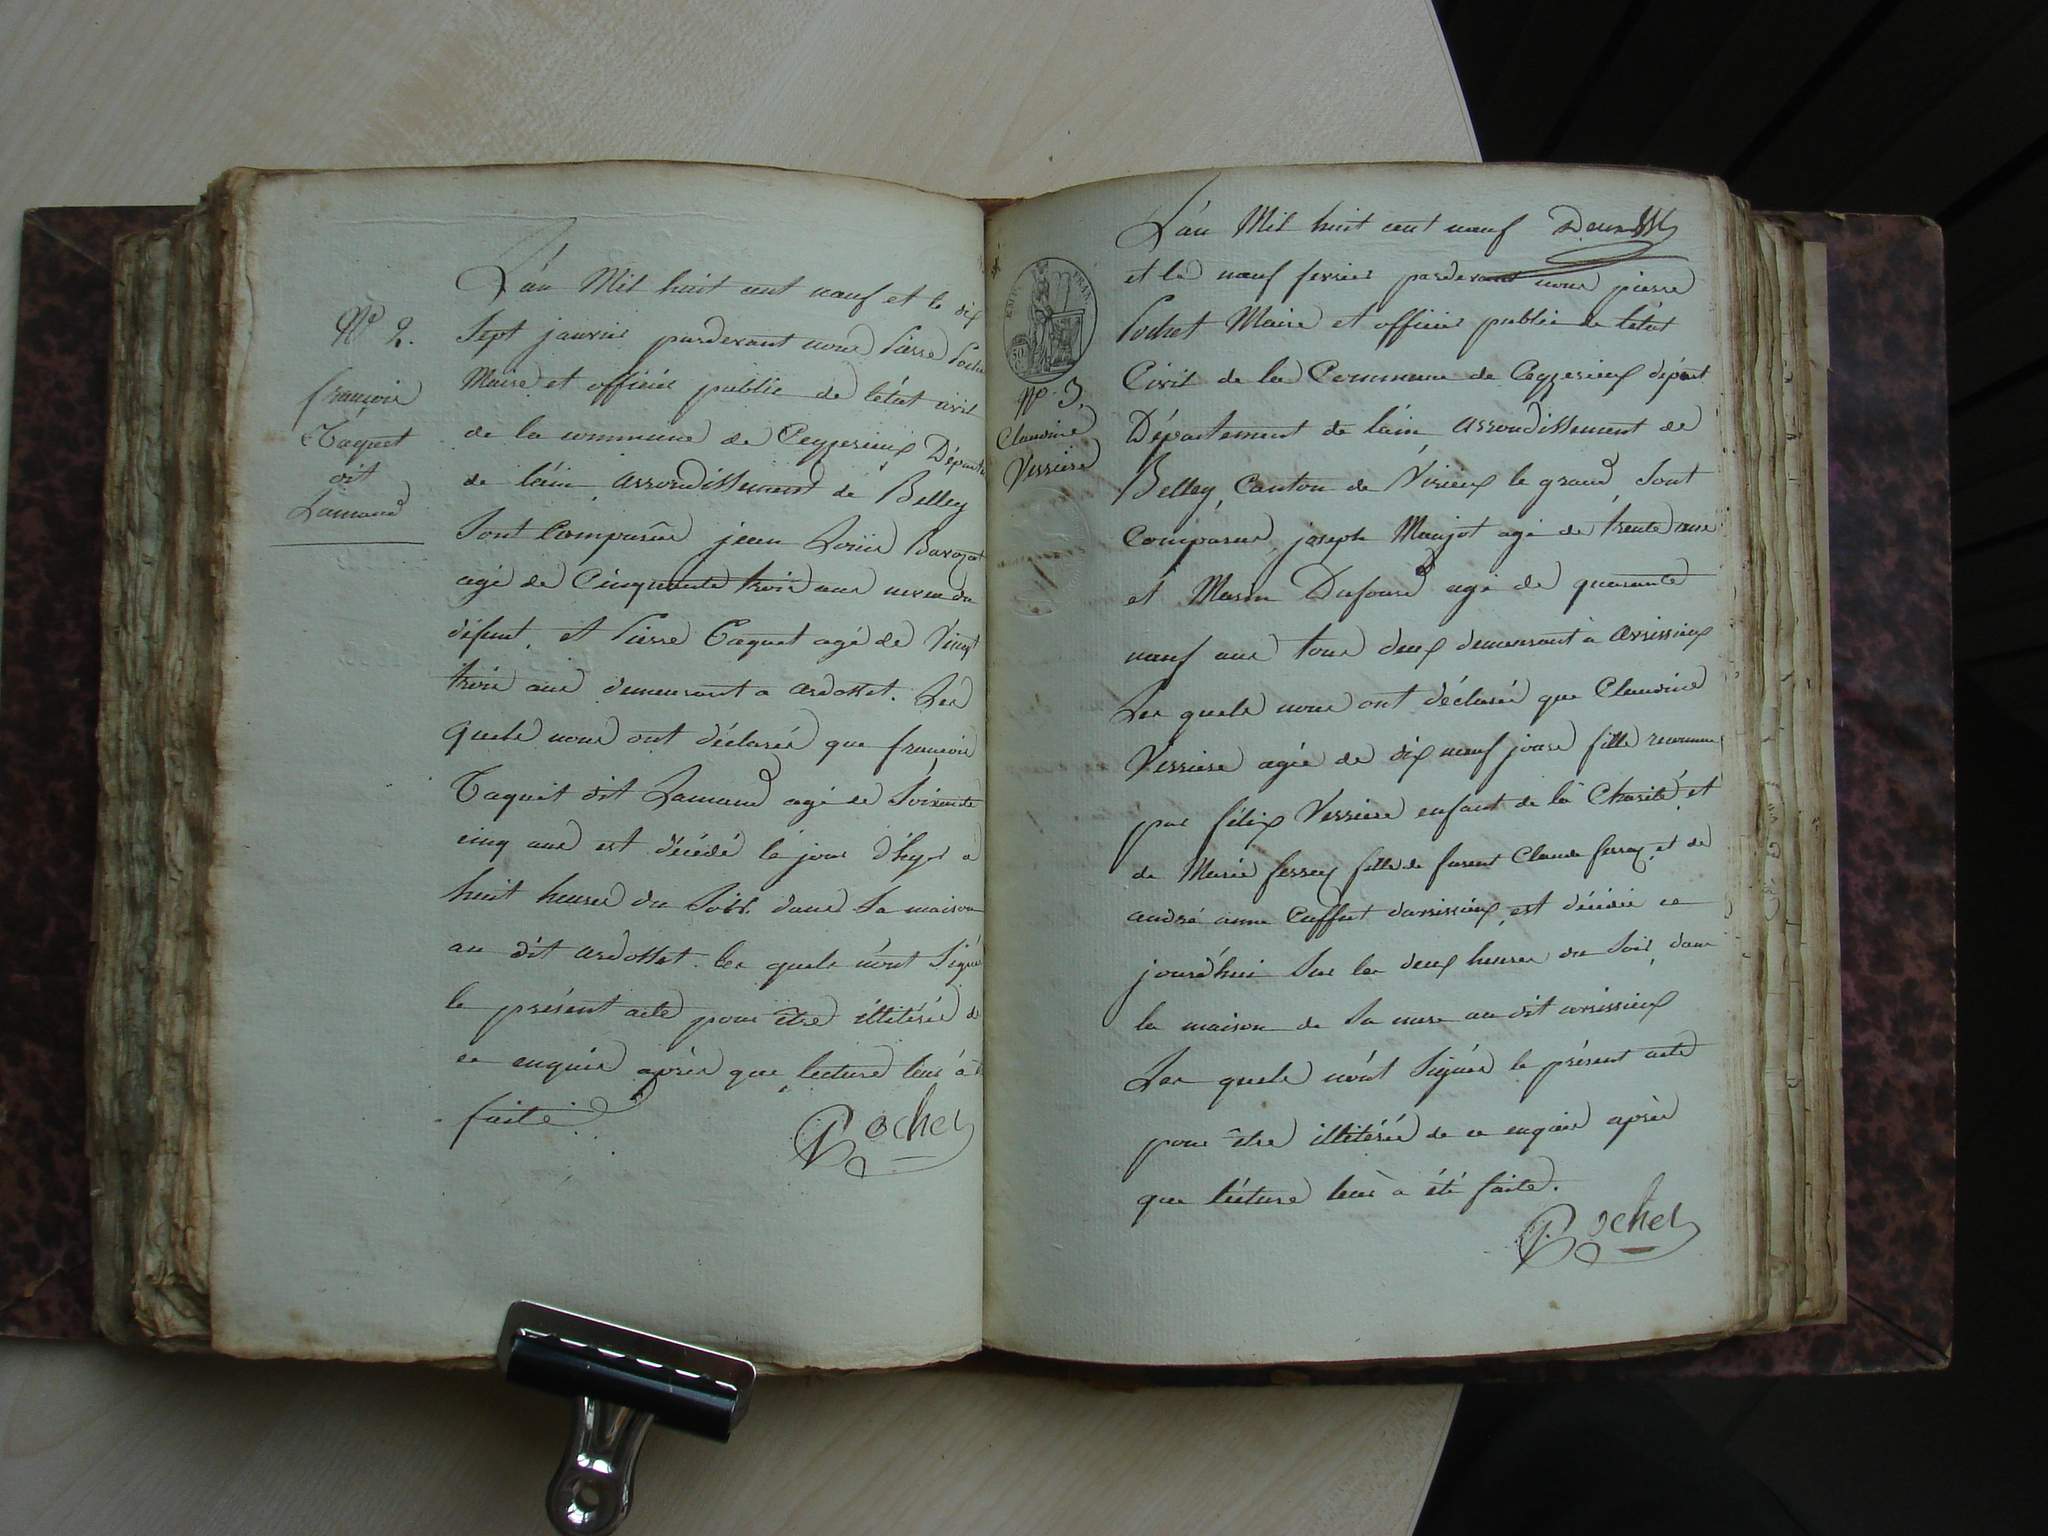 L'an Mil huit cent neuf et le dix
Sept janvier pardevant nous Pierre Poche
Maire et officier public de l'état civil
de la commune de Ceyzerieux Départe
de l'ain, arrondissement de Belley
Sont Comparus jean Loüis
agé de Cinquante trois ans neveu du
défunt, et Pierre Taquet agé de Vingt
trois ans demeurant a ardosset. Les
quels nous ont déclarés que françois
Taquet dit Lamand agé de Soixente
cinq ans est décédé le jour d'hyer a
huit heures du Soir dans Sa maison
au dit ardosset. les quels n'ont Signé
le présent acte pour être illitérés de
ce enquis après que lecture leur à
faite.
Pochet
Nº 2.
françois
Taquet
dit
Lamand
EMP. FRAN.
50
Nº 3.
Claudine
Verriere
L'an Mil huit cent neuf
et le neuf fevrier pardevant nous pierre
Pochet Maire et officier public de l'état
Civil de la Commune de Ceyzerieux dépmt
Département de l'ain arrondissement de
Belley, Canton de Virieux le grand, Sont
Comparus, joseph Maujot agé de trente ans
et Dufour agé de quarante
neuf ans tous deux demeurant à avrissieux
Les quels nous ont déclarés que Claudine
Verriere agée de dix neuf jours fille reconnue
par félix Verriere enfant de la Charité, et
de Marie ferray fille de furent Claude ferray et de
andré anne Cuffet davrissieux, est décédée ce
jourd'hui Sur les deux heures du Soir, dans
la maison de Sa mere au dit avrissieux
Les quels n'ont Signés le présent acte
pour être illitérés de ce enquis après
que lécture leur à été faite.
Pochet